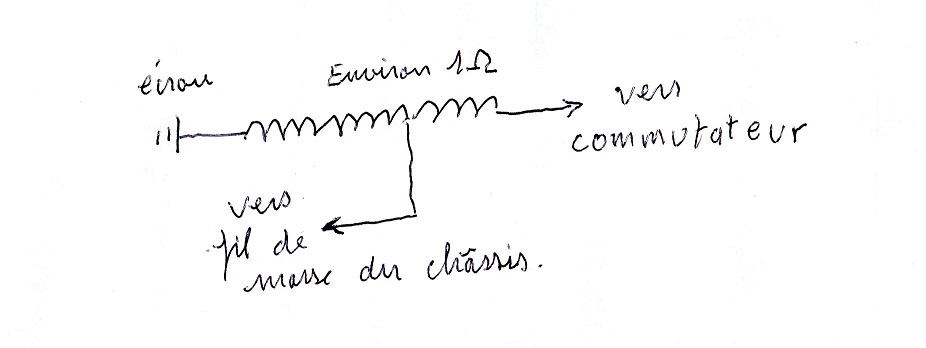 écrou
Environ 1Ω
vers
commutateur
vers
fil de
masse du châssis.